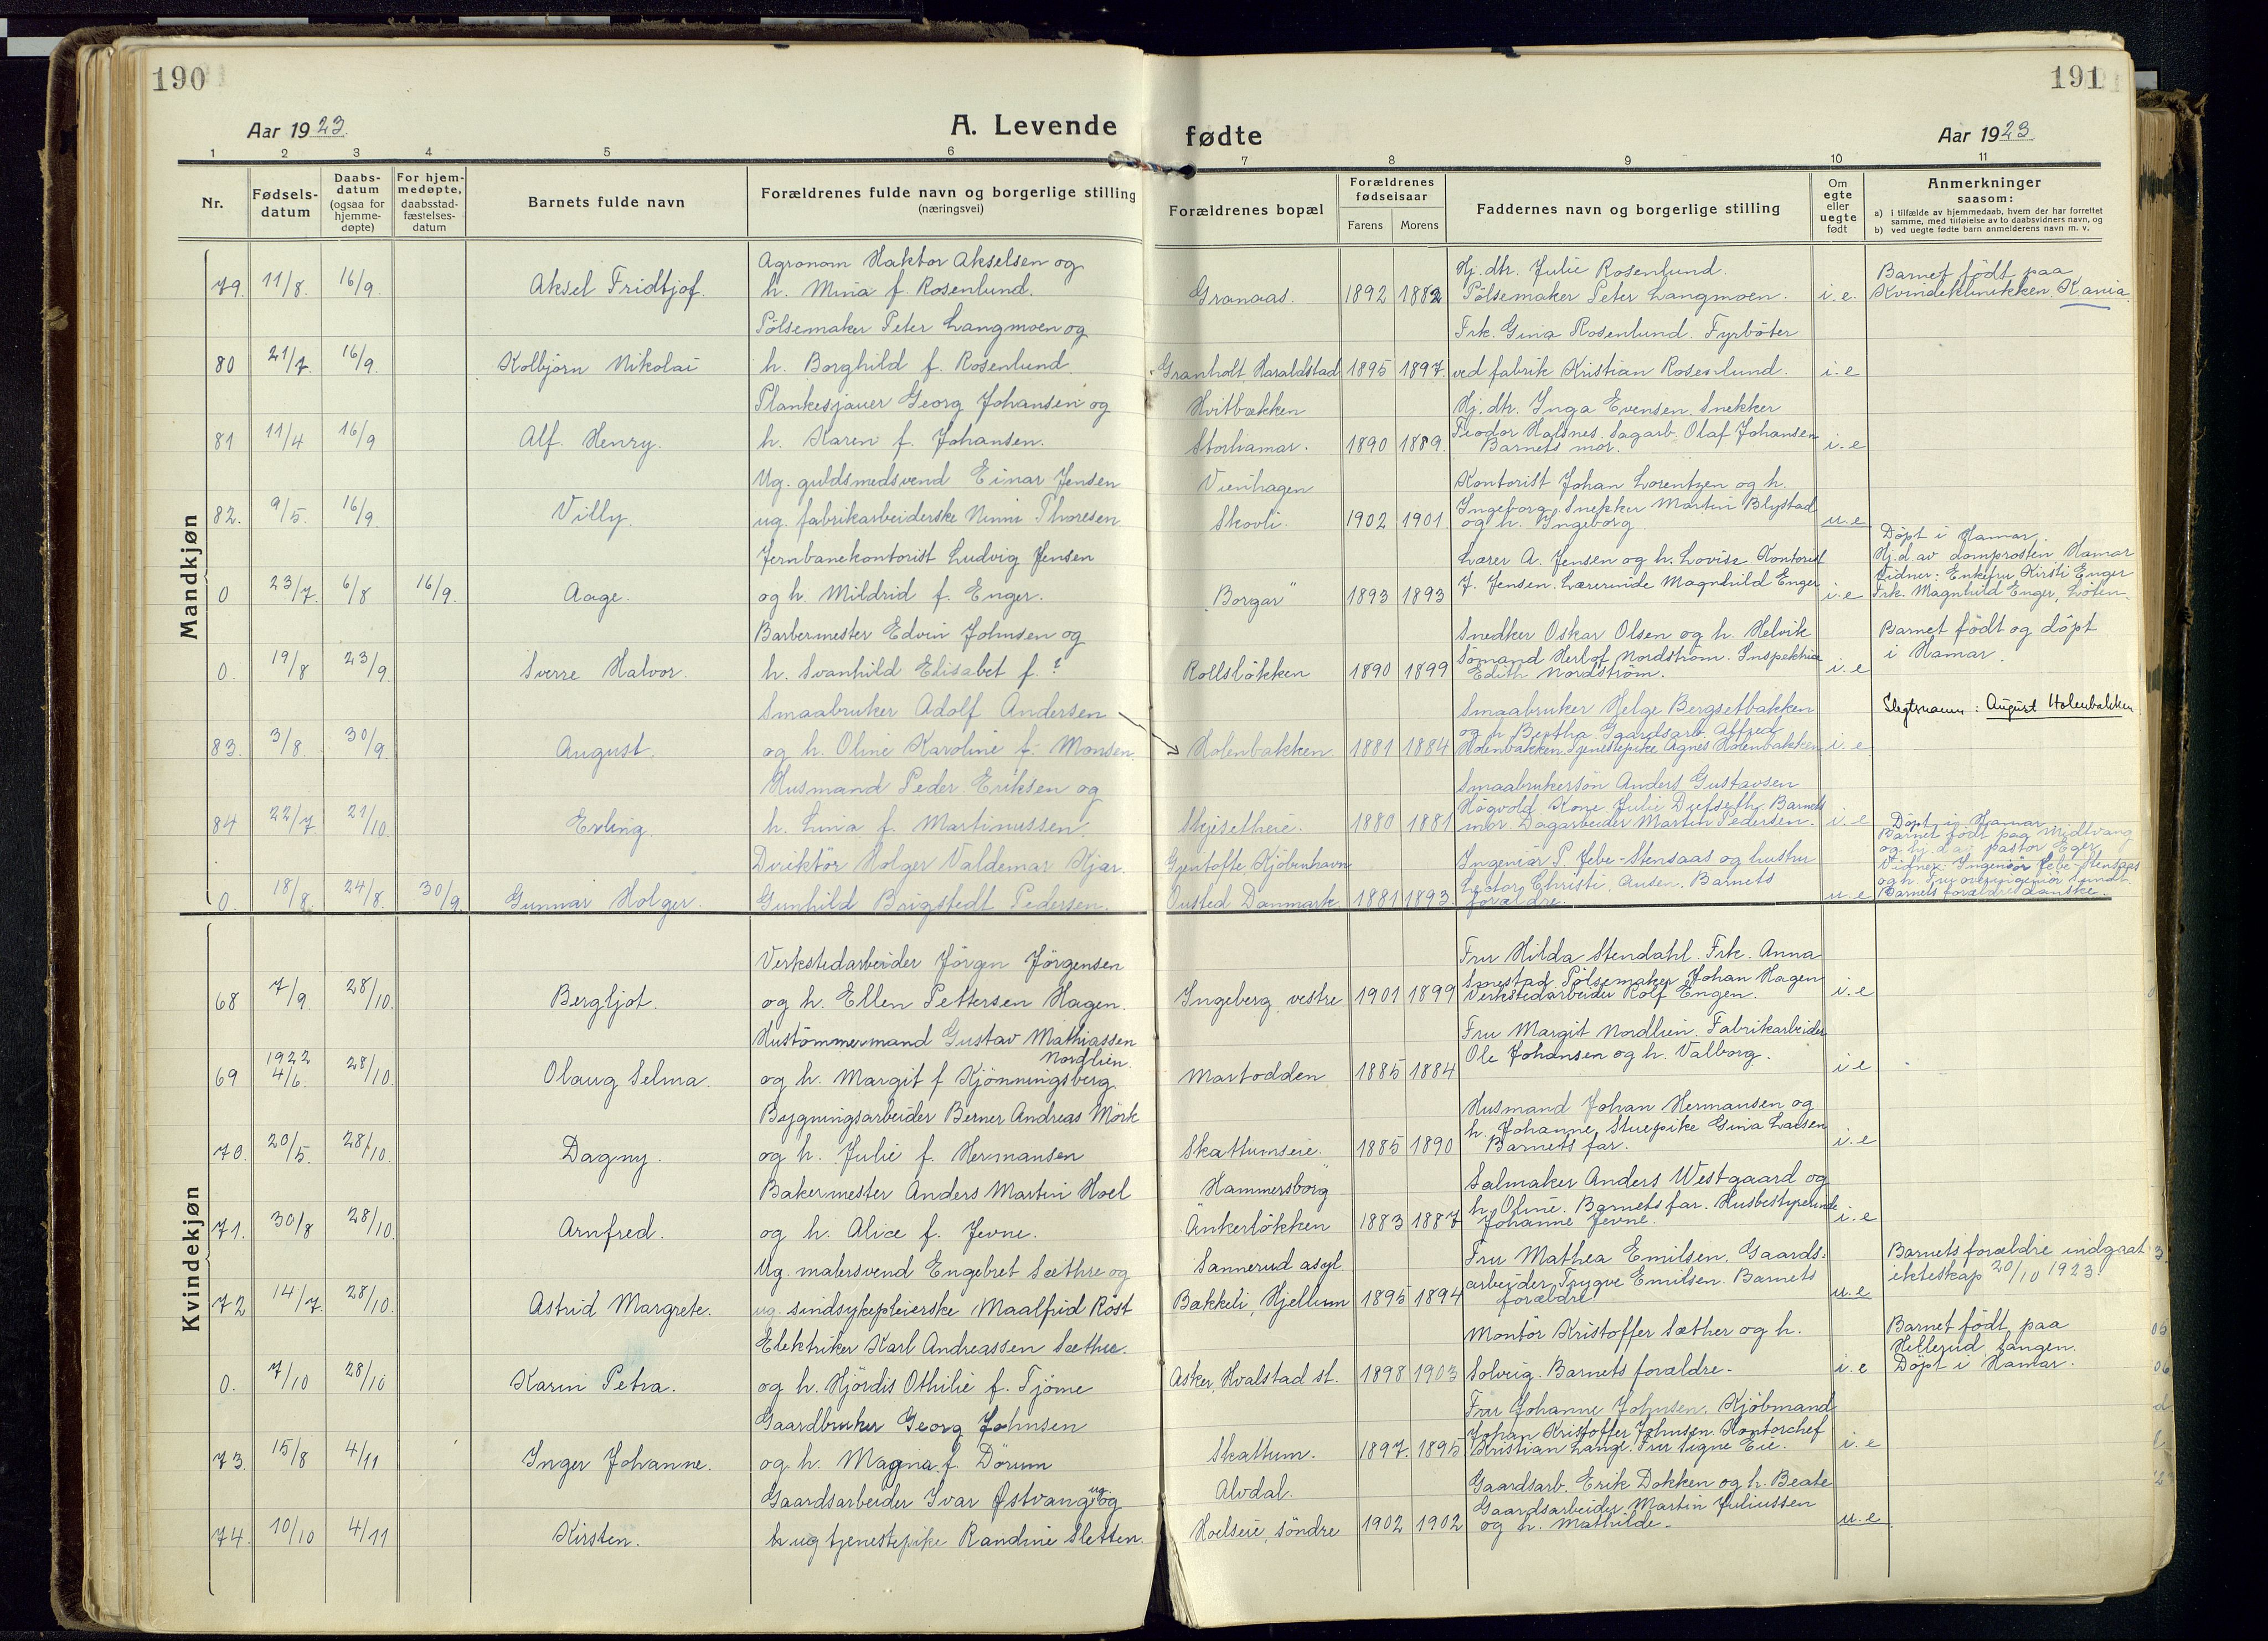 190
191
Aar 1923.
A. Levende
fødte
Aar 1923
1 2 3 4 5 6 7 8 9 10 11
Nr.
Fødsels-
datum
Daabs-
datum
(ogsaa for
hjemme-
døpte)
For hjem-
medøpte,
daabsstad-
fæstelses-
datum
Barnets fulde navn
Forældrenes fulde navn og borgerlige stilling
(næringsvei)
Forældrenes bopæl
Forældrenes
fødselsaar
Farens
Morens
Faddernes navn og borgerlige stilling
Om
egte
eller
uegte
født
Anmerkninger
saasom:
a) i tilfælde av hjemmedaab, hvem der har forrettet
samme, med tilføielse av to daabsvidners navn, og
b) ved uegte fødte barn anmelderens navn m. v.
Mandkjøn
Agronom Haktor Akselsen og
Hj. dtr. Julie Rosenlund.
Barnet födt paa
79. 11/8. 16/9. Aksel Fridtjof. h. Mina f. Rosenlund. Granaas. 1892 1882 Pölsemaker Peter Langmoen. i. e. Kvindeklinikken, Kania.
Pölsemaker Peter Langmoen og
Frk. Gina Rosenlund. Fyrböter
80 21/7. 16/9. Kolbjörn Nikolai h. Borghild f. Rosenlund Granholt Haraldstad 1895 1897. ved fabrik Kristian Rosenlund. i. e
Plankesjauer Georg Johansen og
Hvitbækken
Hj. dtr. Inga Evensen. Snekker
81 11/4 16/9 Alf. Henry. h. Karen f. Johansen. Storhamar. 1890 1889. Teodor Halsnes. Sagarb. Olaf Johansen i. e
Barnets mor.
Ug. guldsmedsvend Einar Jensen
Vienhagen
Kontorist Johan Lorentzen og h.
82. 9/5. 16/9. Villy. ug. fabrikarbeiderske Ninni Thoresen Skovli. 1902 1901. Ingeborg. Snekker Martin Blystad
og h. Ingeborg u. e
Döpt i Hamar.
Jernbanekontorist Ludvig Jensen
Lærer A. Jensen og h. Lovise. Kontorist
Hj. d. av domprosten Hamar
Vidner: Enkefru Kirsti Enger
0 23/7. 6/8 16/9. Aage. og h. Mildrid f. Enger. "Borgar" 1893 1893 J. Jensen. Lærerinde Magnhild Enger i. e Frk. Magnhild Enger, Löten.
Barbermester Edvin Johnsen og
Snedker Oskar Olsen og h. Helvik
Barnet födt og döpt
0. 19/8 23/9. Sverre Halvor. h. Svanhild Elisabet f. ? Rollslökken 1890 1899 Sömand Herlof Nordström. Inspektrice
Edith Nordström. i. e
i Hamar.
Smaabruker Adolf Andersen
Smaabruker Helge Bergsetbakken
Slegtsnavn: August Holenbakken
83. 3/8. 30/9 August. og h. Oline Karoline f. Monsen. Holenbakken. 1881 1884 og h. Bertha. Gaardsarb. Alfred
Holenbakken. Tjenestepike Agnes Holenbakken i. e
Husmand Peder Eriksen og
Smaabrukersön Anders Gustavsen
84 22/7. 21/10. Erling. h. Lina f. Martinussen. Skjesetheie. 1880 1881 Högvold. Kone Julie Dufseth. Barnets
mor. Dagarbeider Martin Pedersen. i. e
Döpt i Hamar
Barnet födt paa Midtvang
Direktör Holger Valdemar Kjar.
Gjentofte, Kjöbenhavn
Ingeniör P. Jebe-Stensaas og hustru
og hj. d. a. pastor Eger
Vidner: Ingeniör Jebe-Stensaas
0. 18/8. 24/8. 30/9. Gunnar Holger. Gunhild Brigstedt Pedersen. Ousted Danmark. 1881 1893. Barnets
forældre. u. e
Barnets forældre danske.
Kvindekjøn
Verkstedarbeider Jörgen Jörgensen
Fru Hilda Stendahl. Frk. Anna
68 7/9. 28/10. Bergljot. og h. Ellen Pettersen Hagen. Ingeberg, vestre 1901 1899 Smestad. Pölsemaker Johan Hagen
Verkstedarbeider Rolf Engen. i. e
Hustömmermand Gustav Mathiassen
Nordlien.
Fru Margit Nordlien. Fabrikarbeider
69 1922 4/6. 28/10. Olaug Selma. og h. Margit f Kjönningsberg. Martodden 1885 1884 Ole Johansen og h. Valborg. i e
Bygningsarbeider Berner Andreas Mörk
Husmand Johan Hermansen og
70. 20/5. 28/10. Dagny. og h. Julie f. Hermansen Skattumseie. 1885 1890 h. Johanne. Stuepike Gina Larsen
Barnets far. i. e
Bakermester Anders Martin Hoel
Hammersborg
Salmaker Anders Westgaard og
71. 30/8 28/10. Arnfred. og h. Alice f. Jevne. Ankerlökken 1883 1887 h. Oline. Barnets far. Husbestyrerinde
Johanne Jevne. i. e
Ug. malersvend Engebret Sæthre og
Sannerud asyl.
Fru Mathea Emilsen. Gaards-
Barnets forældre indgaat
72 14/7. 28/10. Astrid Margrete. ug. sindsykepleierske Maalfrid Röst Bækkeli, Hjellum 1895 1894 arbeider Trygve Emilsen. Barnets
forældre u. e
ekteskap 20/10 1923.
Elektriker Karl Andreassen Sæthre.
Montör Kristoffer Sæther og h.
Barnet födt paa
Hellerud, Tangen.
0. 7/10 28/10 Karin Petra. og h. Hjördis Othilie f. Tjöme Asker, Hvalstad st. 1898 1903 Solveig. Barnets forældre. i. e Döpt i Hamar.
Gaardbruker Georg Johnsen
Fru Johanne Johnsen. Kjöbmand
73. 15/8 4/11 Inger Johanne. og h. Magna f. Dörum Skattum. 1897. 1895 Johan Kristoffer Johnsen. Kontorchef
Kristian Lange. Fru Signe Eie. i. e
Gaardsarbeider Ivar Østvang ug. og
Alvdal.
Gaardsarb. Erik Dokken og h. Beate
74. 10/10 4/11 Kirsten. ug tjenestepike Randine Sletten. Hoelseie, söndre 1902 1902 Gaardsarbeider Martin Juliussen
og h. Mathilde. u. e